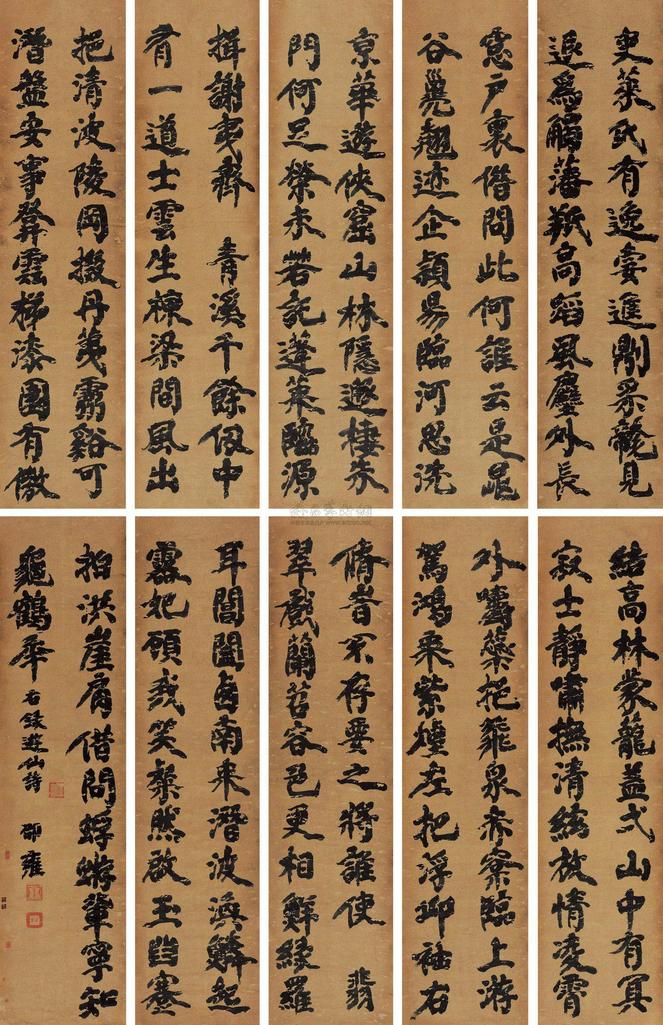 京華遊俠窟山林隱遯棲朱
門何足榮未若託蓬萊臨源
挹清波陵岡掇丹荑靈谿可
潛盤安事登雲梯漆園有傲
吏萊氏有逸妻進則保龍見
退為觸藩羝高蹈風塵外長
揖謝夷齊 青溪千餘仞中
有一道士雲生棟梁間風出
窗戶裏借問此何誰云是鬼
谷巢翹迹企潁易臨河思洗
耳閶闔西南來潛波渙鱗起
靈妃顧我笑粲然啟玉齒蹇
脩旹不存要之將誰使 翡
翠戲蘭苕容色更相鮮綠羅
結高林蒙籠蓋弌山中有冥
寂士靜嘯撫清絃放情凌霄
外嚼蘂挹飛泉赤松臨上游
駕鴻乘紫煙左挹浮丘袖右
拍洪崖肩借問蜉蝣輩寧知
龜鶴年 右錄遊仙詩 邵雍